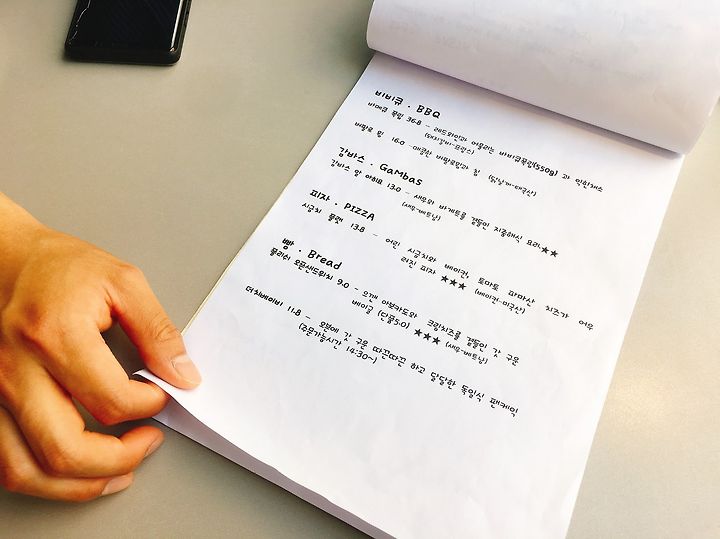 비비큐 · BBQ
바베큐 폭립 36.8 - 레드와인과 어울리는 바비큐폭립(550g) 과 익힌채소
(돼지갈비-프랑스)
버팔로 윙 16.0 -매콤한 버팔로윙과 칩 (닭날개-태국산)
감바스 · Gambas
감바스 알 아히요 13.0 - 새우와 바게트를 곁들인 지중해식 요리★★
(새우-베트남)
피자 · PIZZA
시금치 플랫 13.8 - 어린 시금치와 베이컨, 토마토 파마산 치즈가 어우
러진 피자 ★★★ (베이컨-미국산)
빵 · Bread
폴리쉬 오픈샌드위치 9.0 - 으깬 아보카도와 크림치즈를 곁들인 갓 구운
베이글 (단품5.0) ★★★ (새우-베트남)
더치베이비 11.8 - 오븐에 갓 구운 따끈따끈 하고 달달한 독일식 팬케익
(주문가능시간 14:30~)